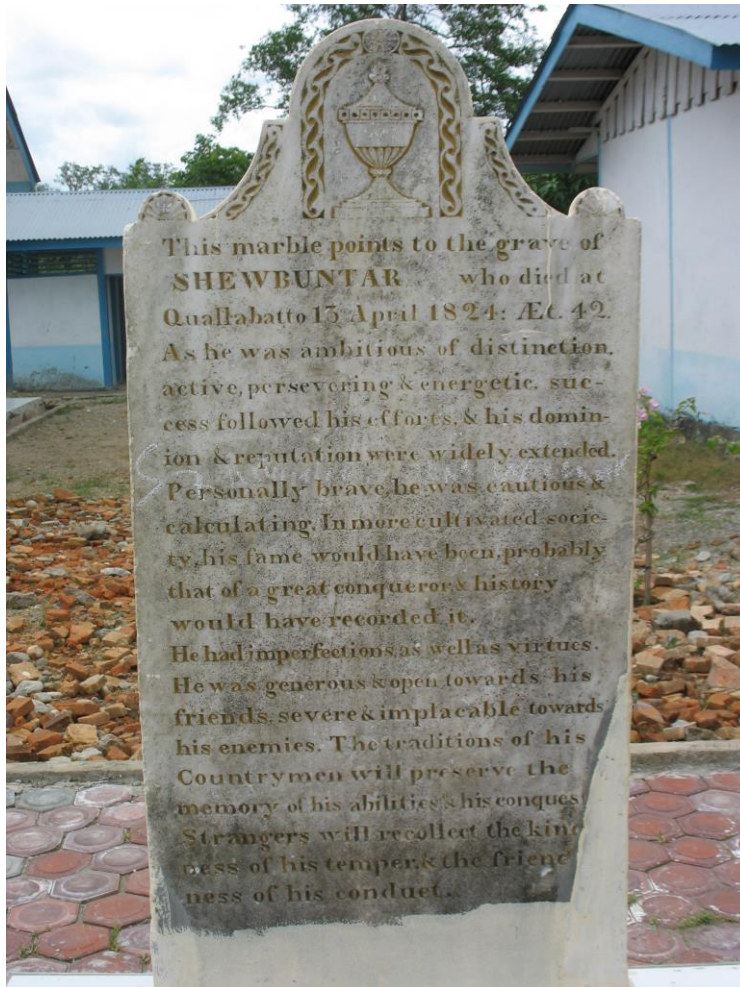 This marble points to the grave of
SHEWBUNTAR who died at
Quallabatto 13 April 1824: Æt. 42.
As he was ambitious of distinction,
active, persevering & energetic, suc-
cess followed his efforts, & his domin-
ion & reputation were widely extended.
Personally brave, he was cautious &
calculating. In more cultivated socie-
ty, his fame would have been, probably
that of a great conqueror, & history
would have recorded it.
He had imperfections, as well as virtues.
He was generous & open towards his
friends, severe & implacable towards
his enemies. The traditions of his
Countrymen will preserve the
memory of his abilities & his conques
Strangers will recollect the kind
ness of his temper & the friend
ness of his conduct.